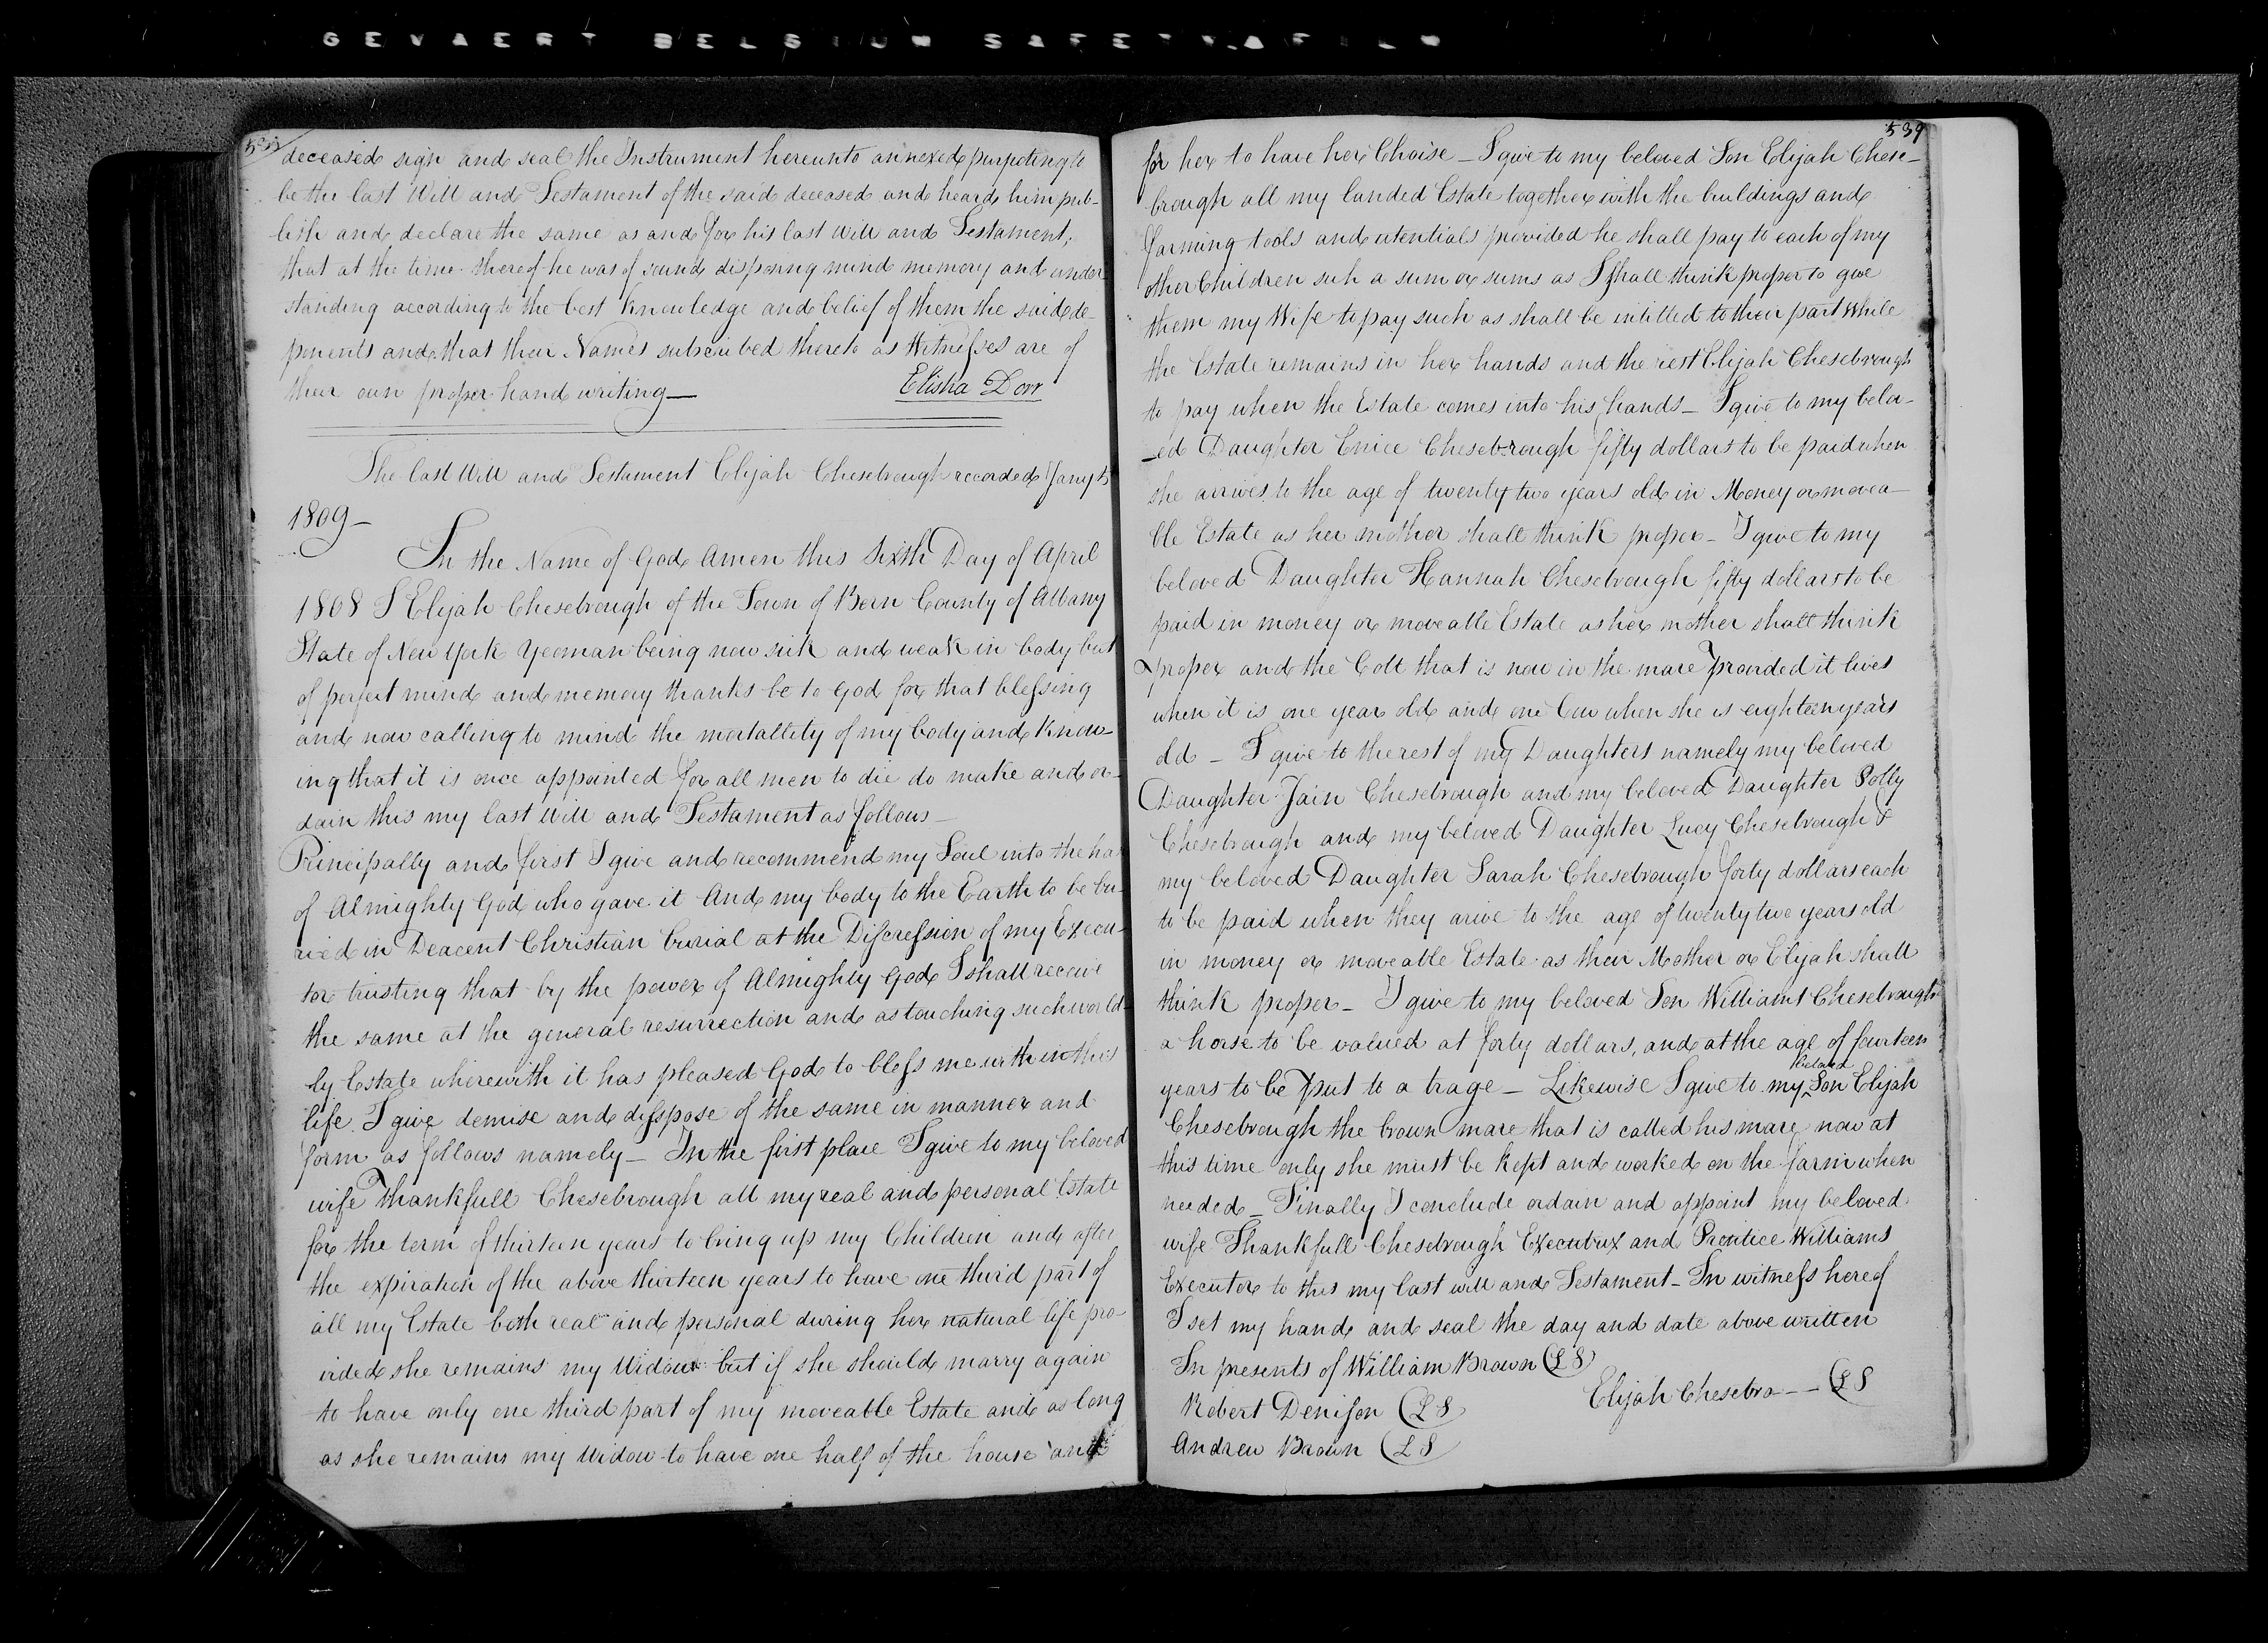 GEVAERT BELGIUM SAFETY FILM
deceased sign and seal the Instrument hereunto annexed purpoting to
be the last Will and Testament of the said deceased and heard him pub-
lish and declare the same as and for his last will and Testament,
that at the time thereof he was of sound disposing mind memory and under
standing according to the best knowledge and belief of them the said de-
ponents and that their Names subscribed thereto as Witnesses are of
their own proper hand writing— Elisha Dorr
The last Will and Testament Elijah Chesebrough recorded Jany 5
1809—
In the Name of God Amen this Sixth Day of April
1808 I Elijah Chesebrough of the Town of Bern County of Albany
State of New York Yeoman being now sick and weak in body but
of perfect mind and memory thanks be to God for that blessing
and now calling to mind the mortallity of my body and know-
ing that it is once appointed for all men to die do make and or-
dain this my last Will and Testament as follows—
Principally and first I give and recommend my Soul into the ha
of Almighty God who gave it And my body to the Earth to be bu-
ried in Deacent Christian burial at the Discression of my Execu-
tor trusting that by the power of Almighty God I shall receive
the same at the general resurrection and as touching such world-
ly Estate wherewith it has pleased God to bless me with in this
life I give demise and disspose of the same in manner and
form as follows namely— In the first place I give to my beloved
wife Thankfull Chesebrough all my real and personal Estate
for the term of thirteen years to bring up my Children and after
the expiration of the above thirteen years to have one third part of
all my Estate both real and personal during her natural life pro-
vided she remains my Widow but if she should marry again
to have only one third part of my moveable Estate and as long
as she remains my Widow to have one half of the house and
539
for her to have her Choise — I give to my beloved Son Elijah Chese-
brough all my landed Estate together with the buildings and
farming tools and utentials provided he shall pay to each of my
other Children such a sum or sums as I shall think proper to give
them my Wife to pay such as shall be intitled to their part while
the Estate remains in her hands and the rest Elijah Chesebrough
to pay when the Estate comes into his hands— I give to my belov-
-ed Daughter Enice Chesebrough fifty dollars to be paid when
she arrives to the age of twenty two years old in Money or movea-
ble Estate as her mother shall think proper— I give to my
beloved Daughter Hannah Chesebrough fifty dollars to be
paid in money or moveable Estate as her mother shall think
proper and the Colt that is now in the mare provided it lives
when it is one year old and one Cow when she is eighteen years
old — I give to the rest of my Daughters namely my beloved
Daughter Jain Chesebrough and my beloved Daughter Polly
Chesebrough and my beloved Daughter Lucy Chesebrough &
my beloved Daughter Sarah Chesebrough forty dollars each
to be paid when they arive to the age of twenty two years old
in money or moveable Estate as their Mother or Elijah shall
think proper— I give to my beloved Son William Chesebrough
a horse to be valued at forty dollars, and at the age of fourteen
years to be put to a trage — Likewise I give to my beloved Son Elijah
Chesebrough the brown mare that is called his mare now at
this time only she must be kept and worked on the farm when
needed— Finally I conclude ordain and appoint my beloved
wife Thankfull Chesebrough Executrix and Prentice Williams
Executor to this my last will and Testament— In witness hereof
I set my hand and seal the day and date above written
In presents of William Brown (LS)
Elijah Chesebro -- (LS
Robert Denison (LS)
Andrew Brown (LS)